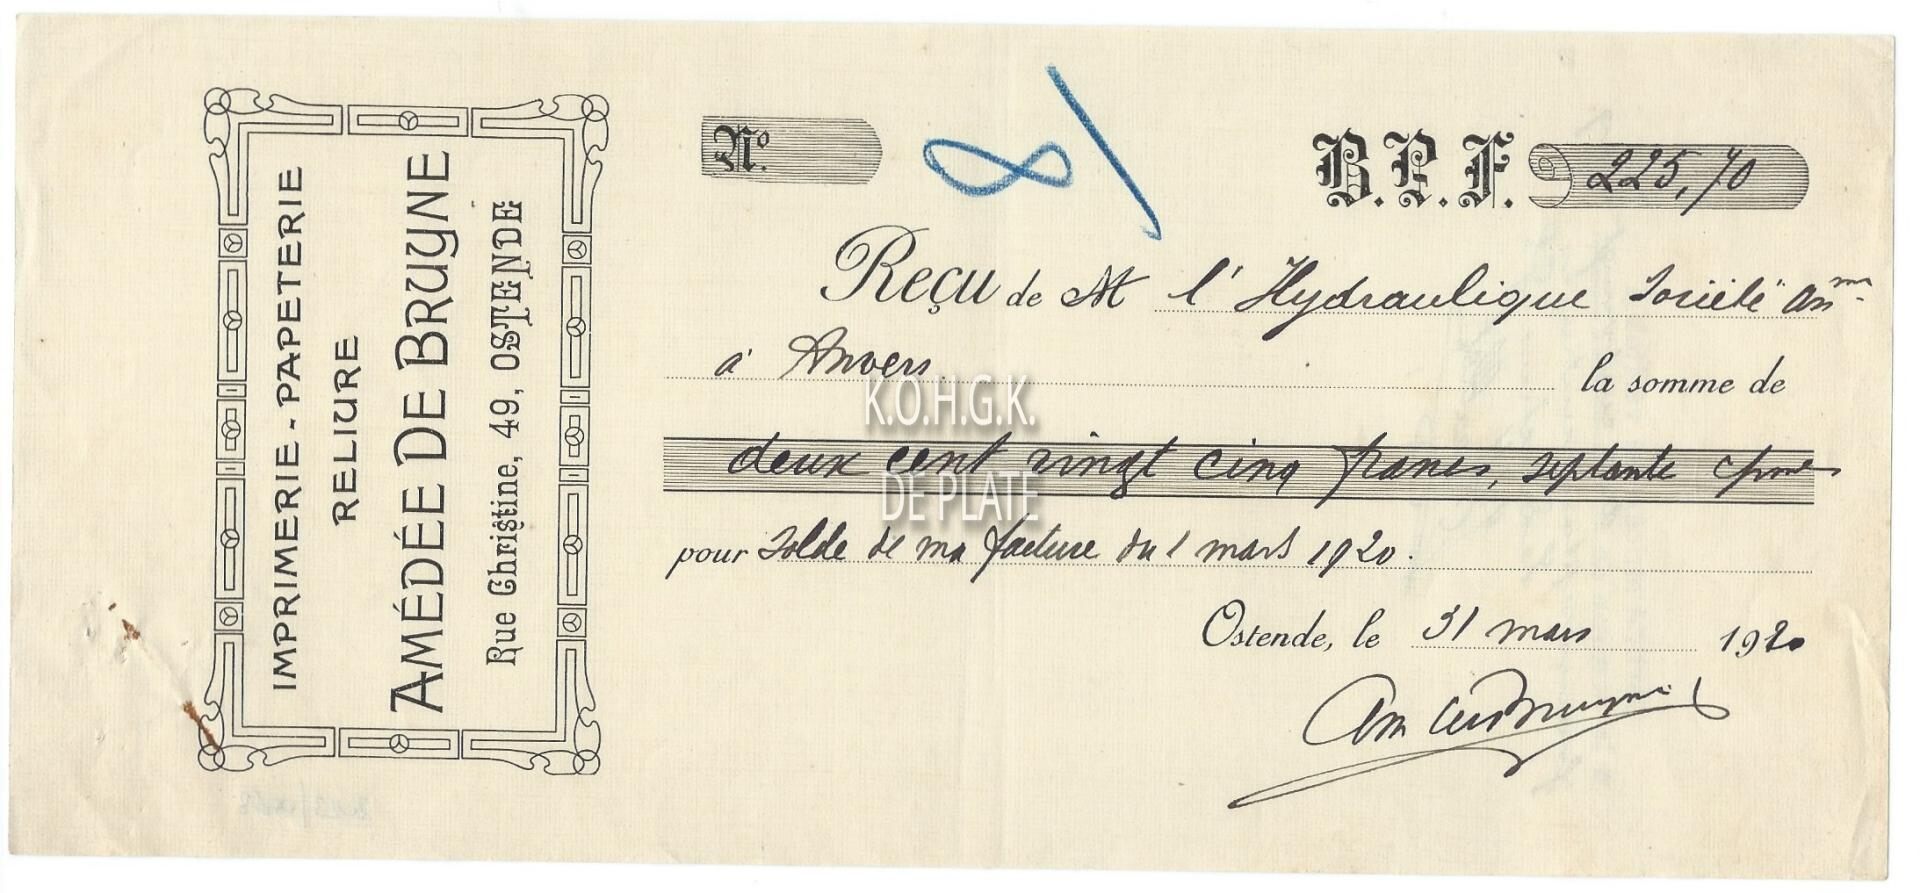 IMPRIMERIE - PAPETERIE
RELIURE
AMÉDÉE DE BRUYNE
Rue Christine, 49, OSTENDE
Nº
81
B.P.F. 225,70
Reçu de M l'Hydraulique Société Anme
à Anvers la somme de
deux cent vingt cinq francs, septante
pour Solde de ma facture du 1 mars 1920.
Ostende, le 31 mars 1920
K.O.H.G.K.
DE PLATE